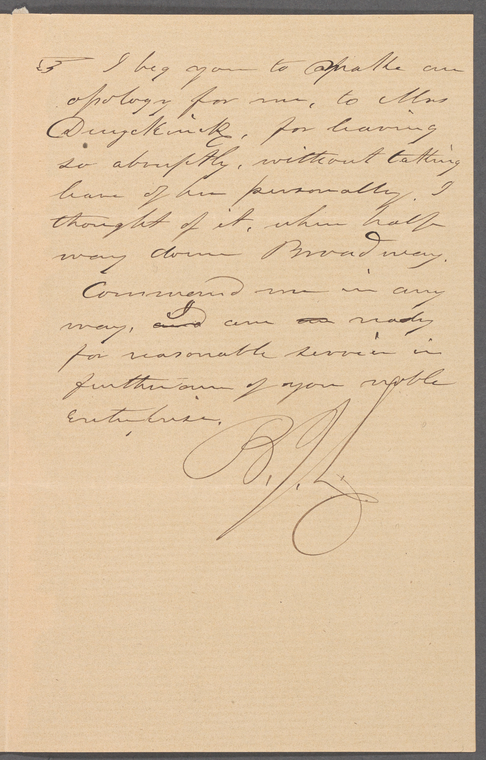 ☞ I beg you to make an
apology for me, to Mrs
Duyckinck, for leaving
so abruptly, without taking
leave of her personally. I
thought of it, when half
way down Broadway.
Command me in any
way, I am ready
for reasonable service in
furtherance of your noble
Enterprise.
B. J. L.